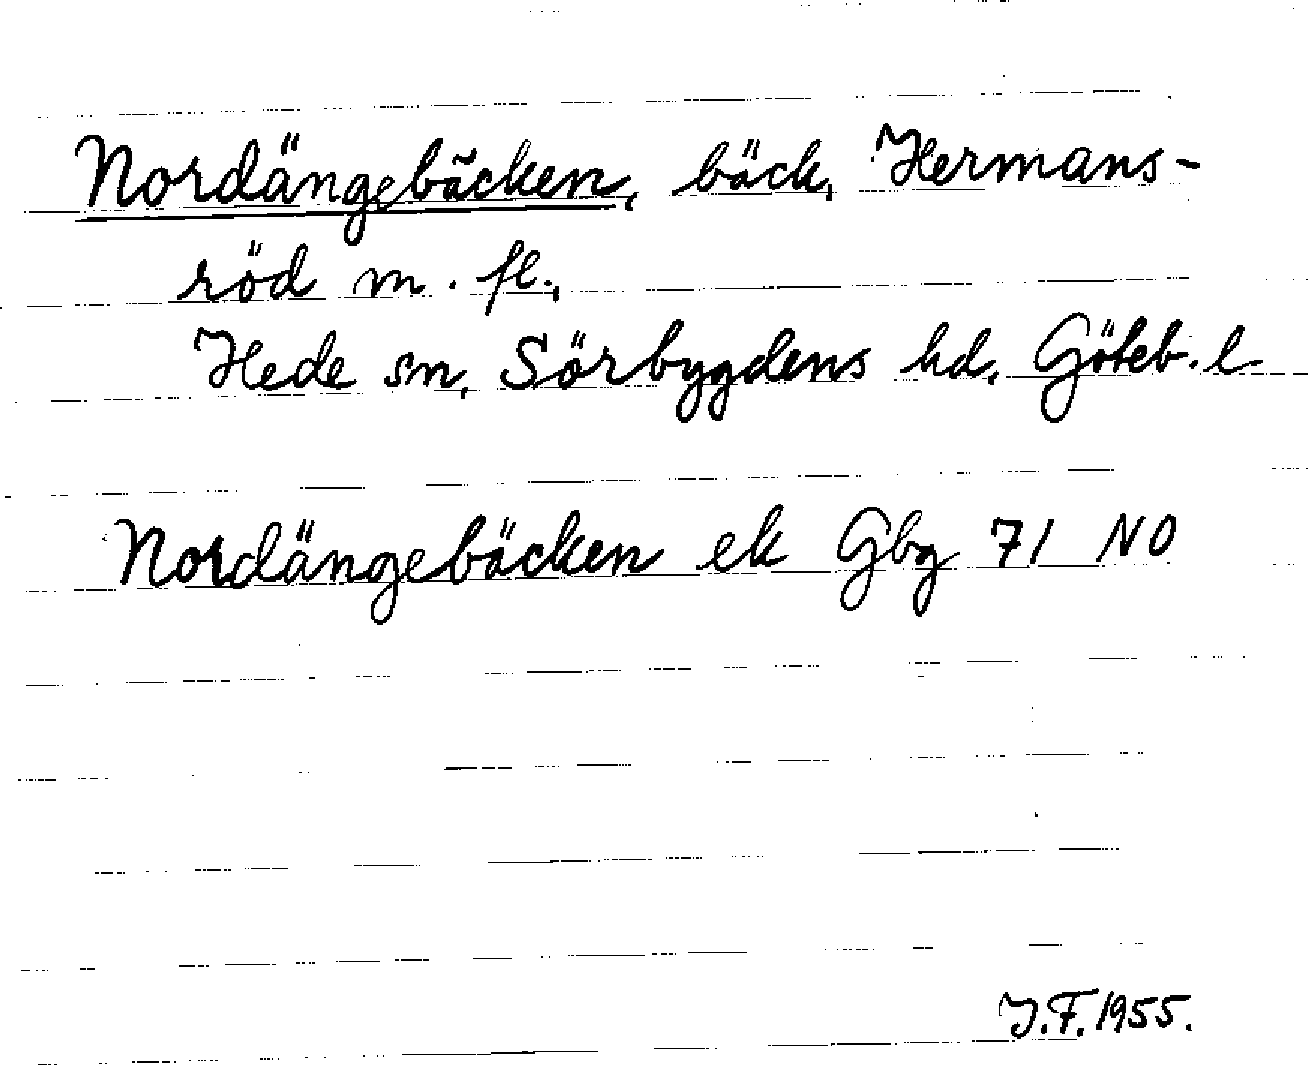 Nordängebäcken, bäck, Hermans-
röd m. fl.,
Hede sn, Sörbygdens hd. Göteb. l
Nordängebäcken ek Gbg 71 NO
J.F. 1955.